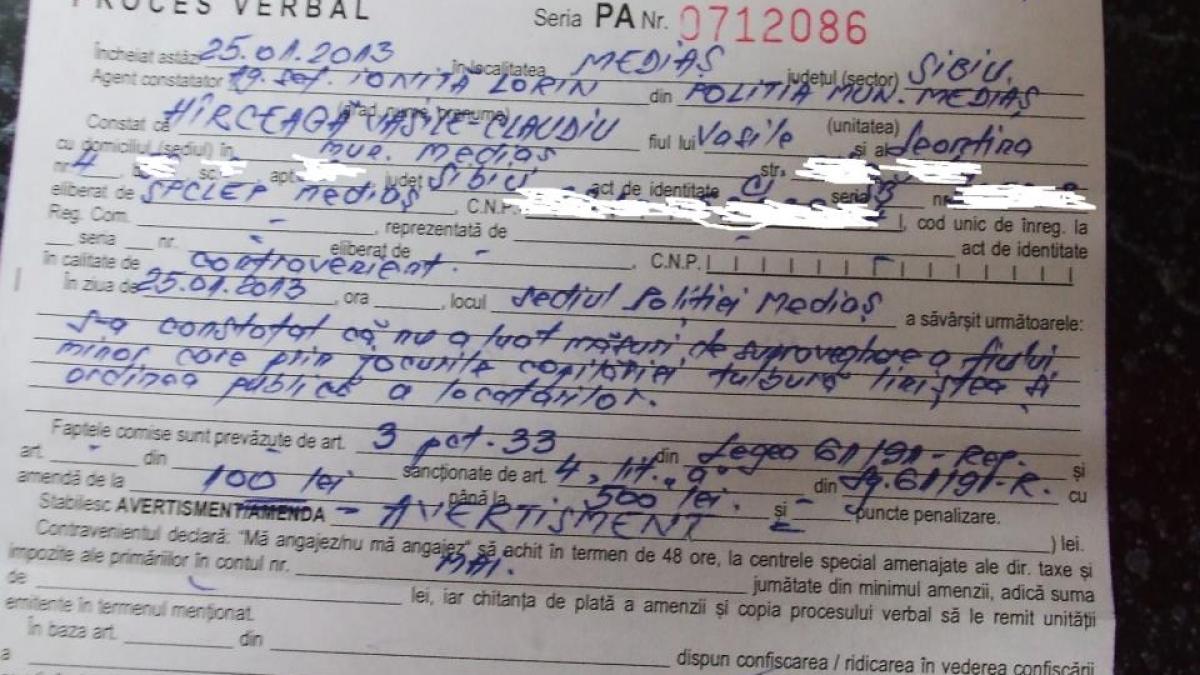 PROCES VERBAL Seria PA Nr. 0712086
Încheiat astăzi 25.01.2013 în localitatea MEDIAȘ județul (sector) SIBIU.
Agent constatator Ag. șef. IONIȚĂ LORIN din POLIȚIA MUN. MEDIAȘ
(grad, nume, prenume) (unitatea)
Constat că HÎRCEAGA VASILE-CLAUDIU fiul lui Vasile și al Leontina
cu domiciliul (sediul) în mun. Mediaș str.
nr. 4 sc. apt. județ Sibiu act de identitate CI seria nr.
eliberat de SPCLEP Mediaș, C.N.P. cod unic de înreg. la
Reg. Com. - , reprezentată de - act de identitate
seria nr. - eliberat de - , C.N.P.
în calitate de contravenient.
În ziua de 25.01.2013, ora , locul sediul Poliției Mediaș a săvârșit următoarele:
S-a constatat că nu a luat măsuri de supraveghere a fiului
minor care prin jocurile copilăriei tulbură liniștea și
ordinea publică a locatarilor.
Faptele comise sunt prevăzute de art. 3 pct. 33 din Legea 61/91-Rep. și
art. - din sancționate de art. 4, lit. a din Lg. 61/91-R. cu
amendă de la 100 lei până la 500 lei. și - puncte penalizare.
Stabilesc AVERTISMENT/AMENDA - AVERTISMENT ) lei.
Contravenientul declară: "Mă angajez/nu mă angajez" să echit în termen de 48 ore, la centrele special amenajate ale dir. taxe și
impozite ale primăriilor în contul nr. jumătate din minimul amenzii, adică suma
de lei, iar chitanța de plată a amenzii și copia procesului verbal să le remit unității
emitente în termenul menționat.
În baza art. din dispun confiscarea / ridicarea în vederea confiscării
a